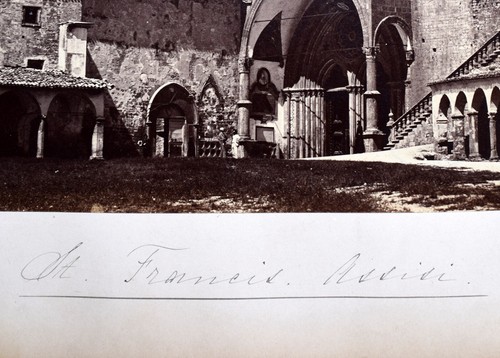 St. Francis. Assisi.